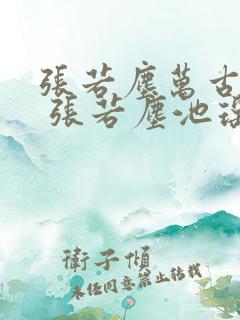 張若塵萬古
張若塵池
衛子傾
未經同意禁止轉載